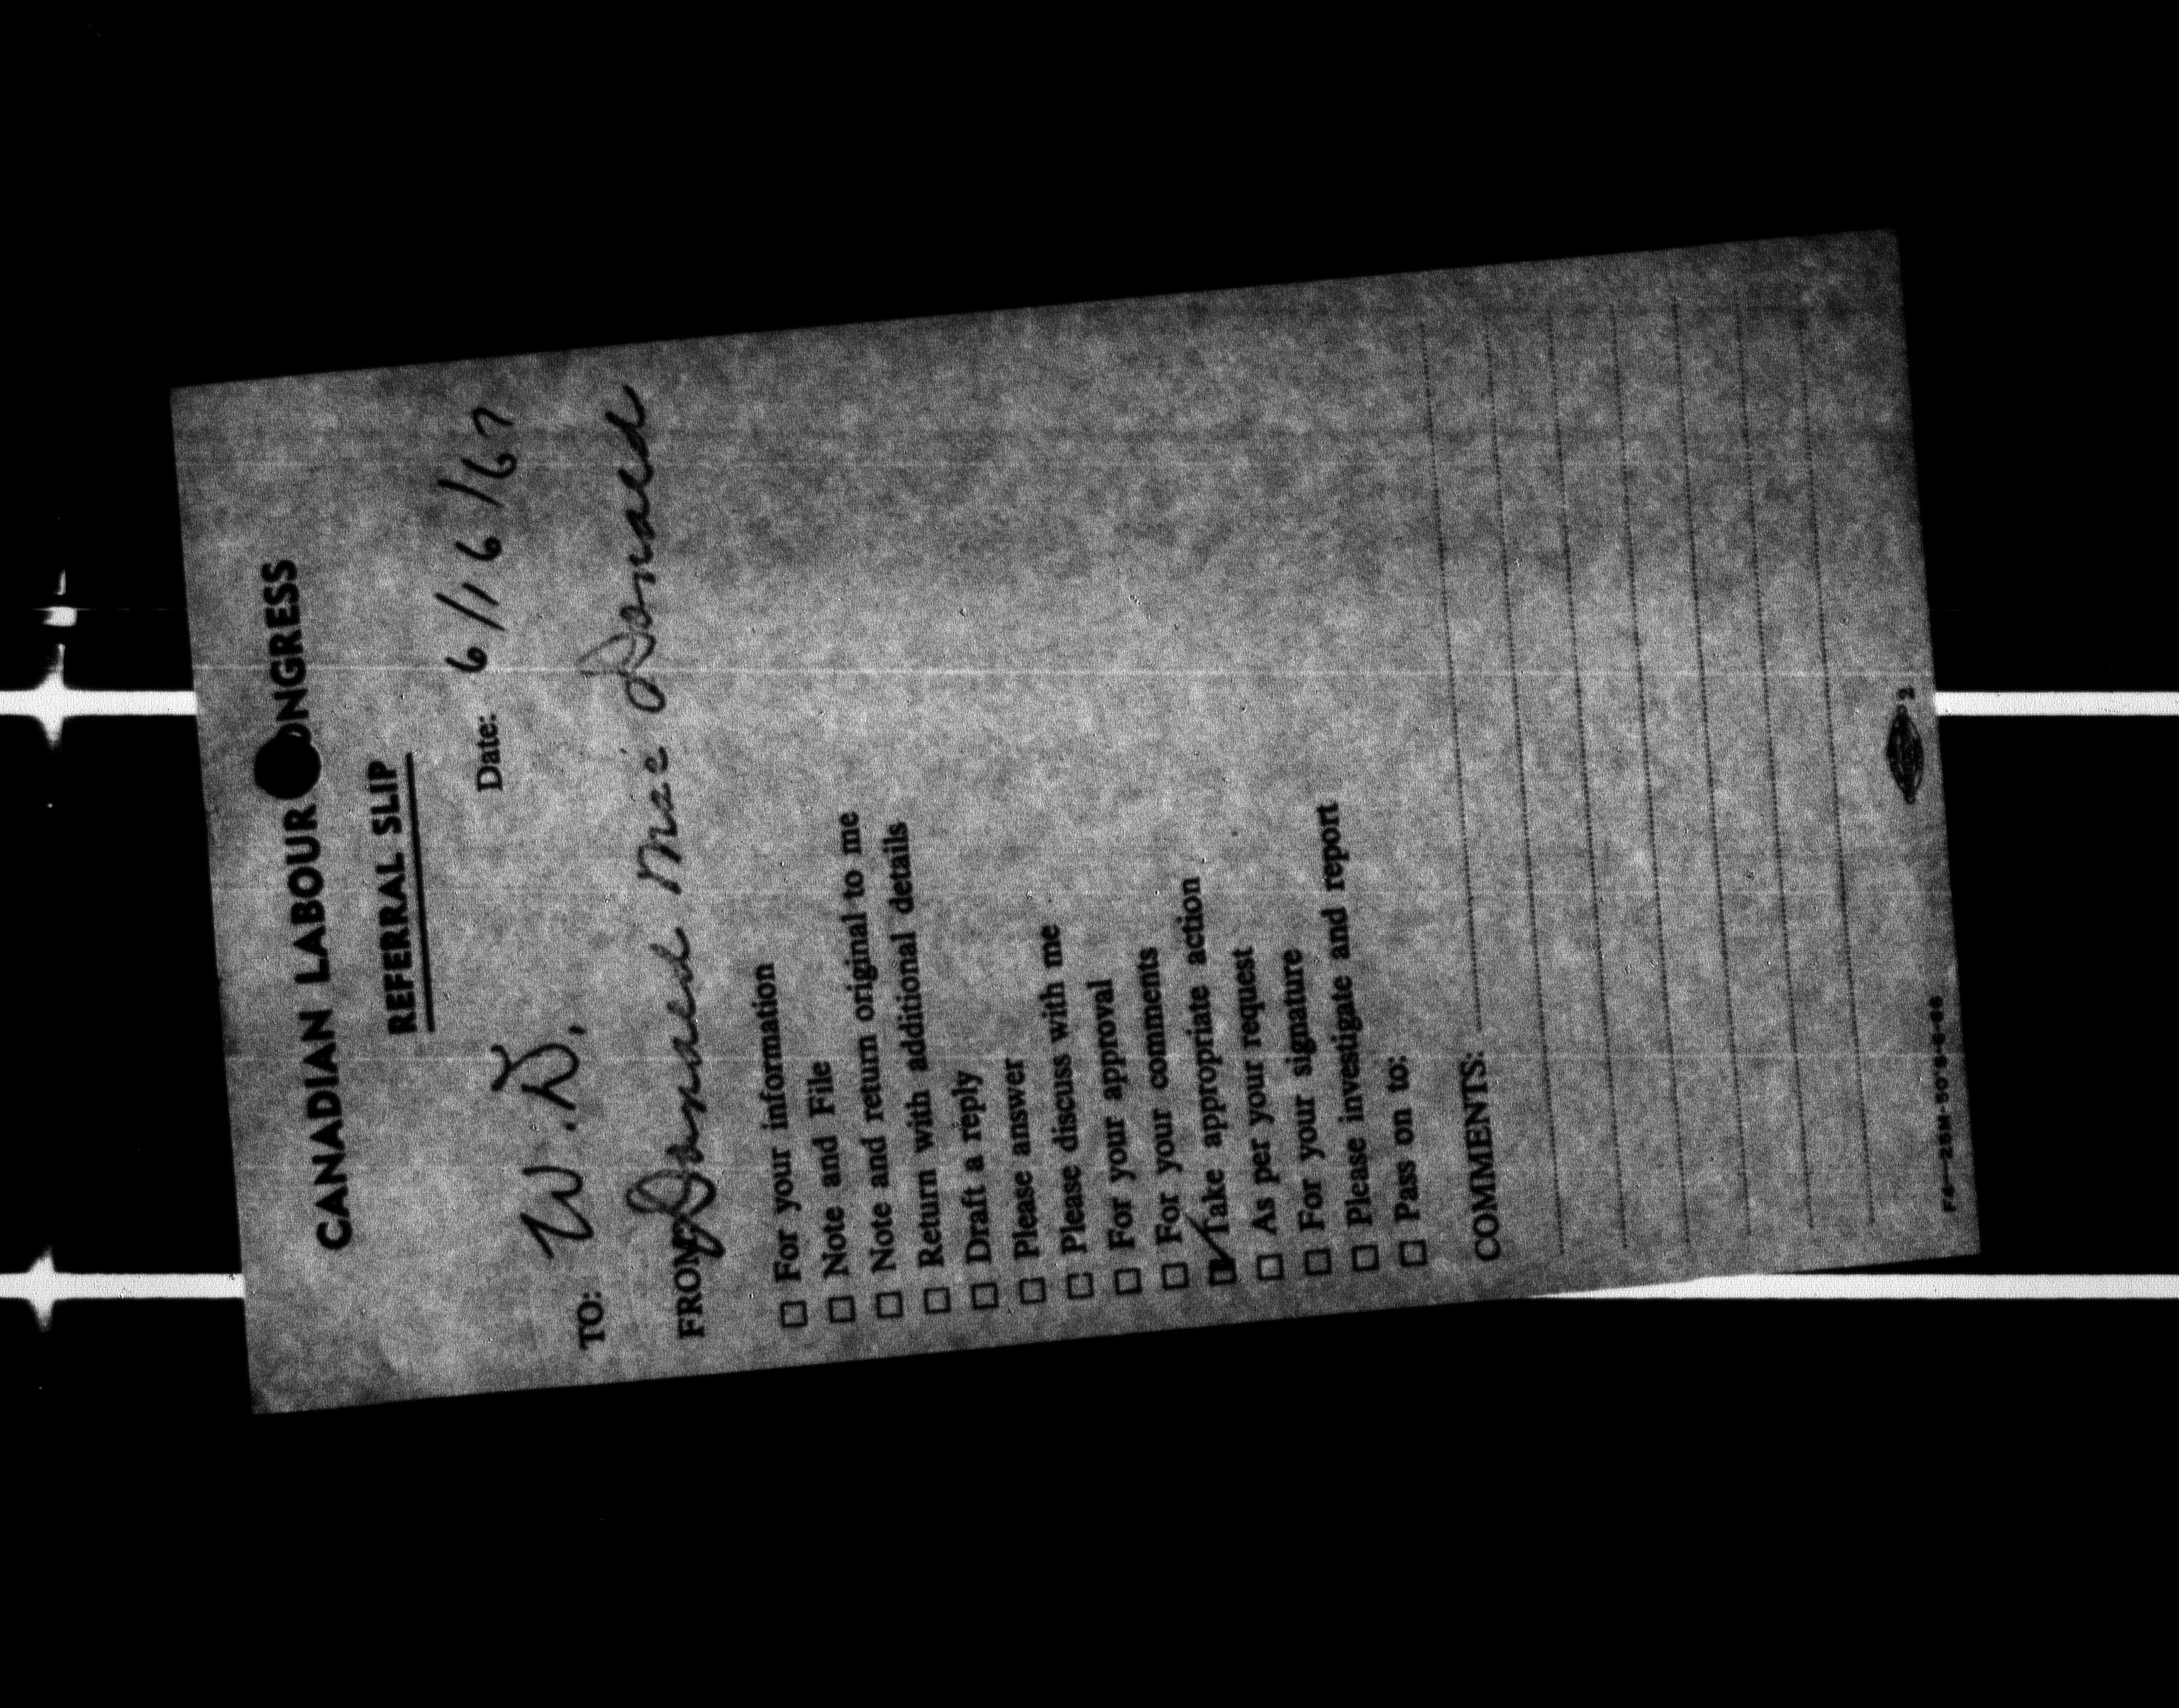 CANADIAN LABOUR CONGRESS
REFERRAL SLIP
Date: 6/16/67
TO: W.D.
FROM: Donald MacDonald
☐ For your information
☐ Note and File
☐ Note and return original to me
☐ Return with additional details
☐ Draft a reply
☐ Please answer
☐ Please discuss with me
☐ For your approval
☐ For your comments
☑ Take appropriate action
☐ As per your request
☐ For your signature
☐ Please investigate and report
☐ Pass on to:
COMMENTS:
2